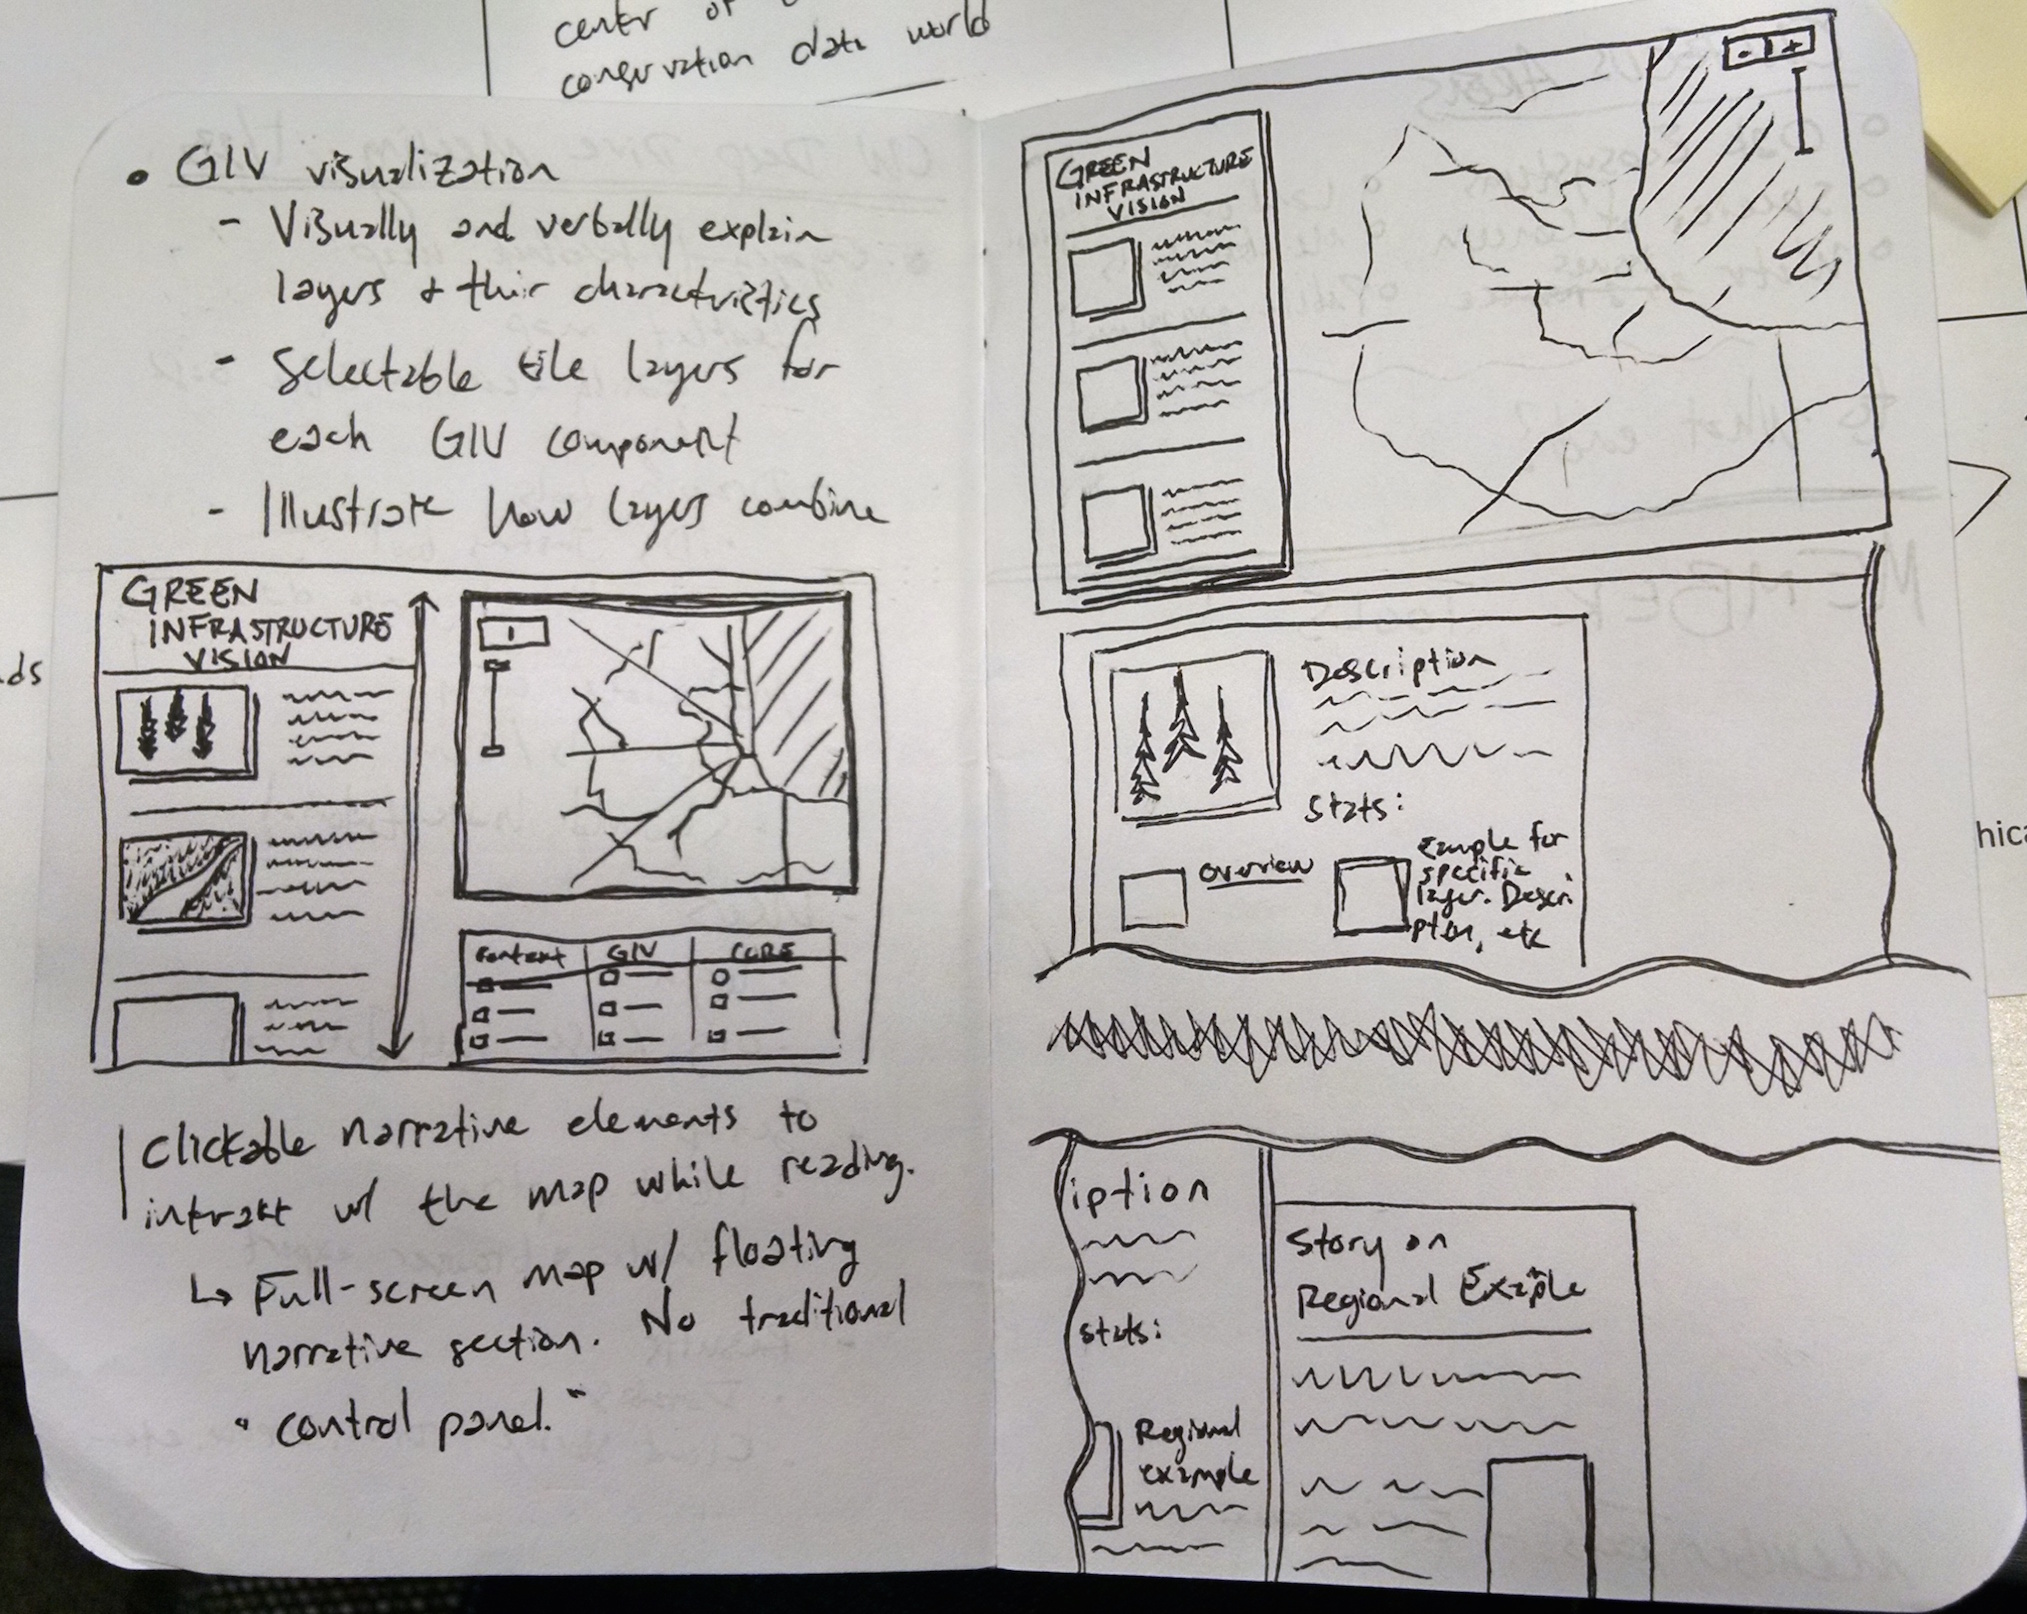 conservation data world
• GIV visualization
- Visually and verbally explain
layers + their characteristics
- Selectable tile layers for
each GIV component
- Illustrate how layers combine
GREEN
INFRASTRUCTURE
VISION
Context GIV CORE
Clickable narrative elements to
interact w/ the map while reading.
↳ Full-screen map w/ floating
narrative section. No traditional
"control panel."
GREEN
INFRASTRUCTURE
VISION
- +
Description
Stats:
Overview
Example for
specific
layer. Descri
ption, etc
iption
stats:
Regional
example
Story on
Regional Example
ds
hica